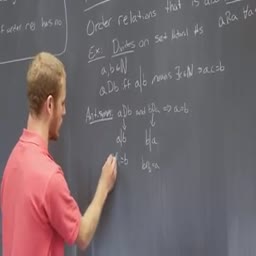 f order rel has no
Order relations that is also
Ex: Divides on set natural #s aRa ∀a
a, b ∈ ℕ
aDb iff a|b means ∃c∈ℕ ∋ a·c=b
Antisymm: aDb and bDa ⇒ a=b
a|b b|a
=b =a